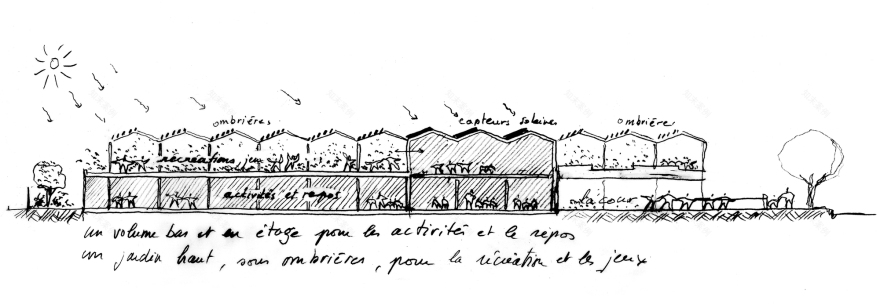 ombrières
capteurs solaires
ombrière
récréations jeux
activités et repos
la cour
un volume bas et en étage pour les activités et le repos
un jardin haut, sous ombrières, pour la récréation et les jeux